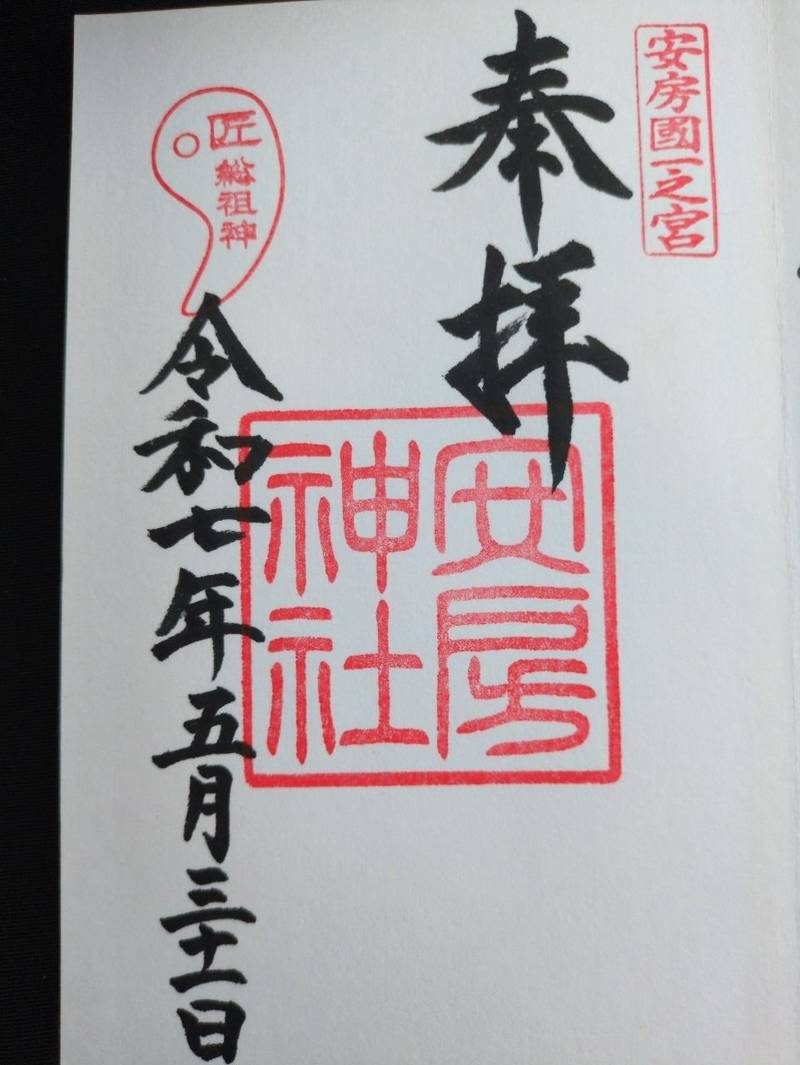 安房國一之宮
奉拝
安房
神社
匠
総祖神
令和七年五月三十一日